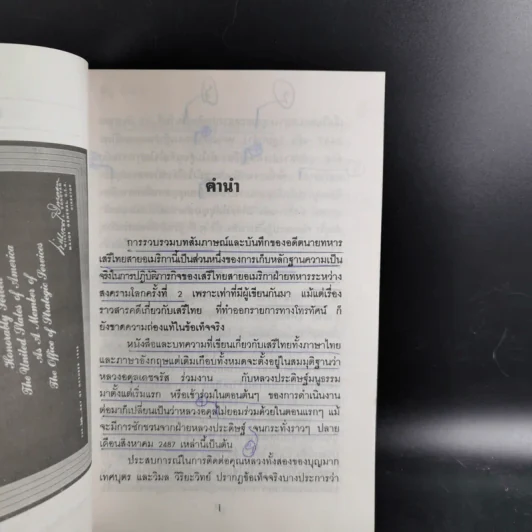 Honorably Served
The United States of America
As A Member of
The Office of Strategic Services
คำนำ
การรวบรวมบทสัมภาษณ์และบันทึกของอดีตนายทหาร
เสรีไทยสายอเมริกานี้เป็นส่วนหนึ่งของการเก็บหลักฐานความเป็น
จริงในการปฏิบัติภารกิจของเสรีไทยสายอเมริกาฝ่ายทหารระหว่าง
สงครามโลกครั้งที่ 2 เพราะเท่าที่มีผู้เขียนกันมา แม้แต่เรื่อง
ราวสารคดีเกี่ยวกับเสรีไทย ที่ทำออกรายการทางโทรทัศน์ ก็
ยังขาดความถ่องแท้ในข้อเท็จจริง
หนังสือและบทความที่เขียนเกี่ยวกับเสรีไทยทั้งภาษาไทย
และภาษาอังกฤษแต่เดิมเกือบทั้งหมดจะตั้งอยู่ในสมมุติฐานว่า
หลวงอดุลเดชจรัส ร่วมงาน กับหลวงประดิษฐ์มนูธรรม
มาตั้งแต่เริ่มแรก หรือเข้าร่วมในตอนต้นๆ ของการดำเนินงาน
ต่อมาก็เปลี่ยนเป็นว่าหลวงอดุลไม่ยอมร่วมด้วยในตอนแรกๆ แม้
จะมีการชักชวนจากฝ่ายหลวงประดิษฐ์ จนกระทั่งราวๆ ปลาย
เดือนสิงหาคม 2487 เหล่านี้เป็นต้น
ประสบการณ์ในการติดต่อคุณหลวงทั้งสองของบุญมาก
เทศบุตร และวิมล วิริยะวิทย์ ปรากฏข้อเท็จจริงบางประการว่า